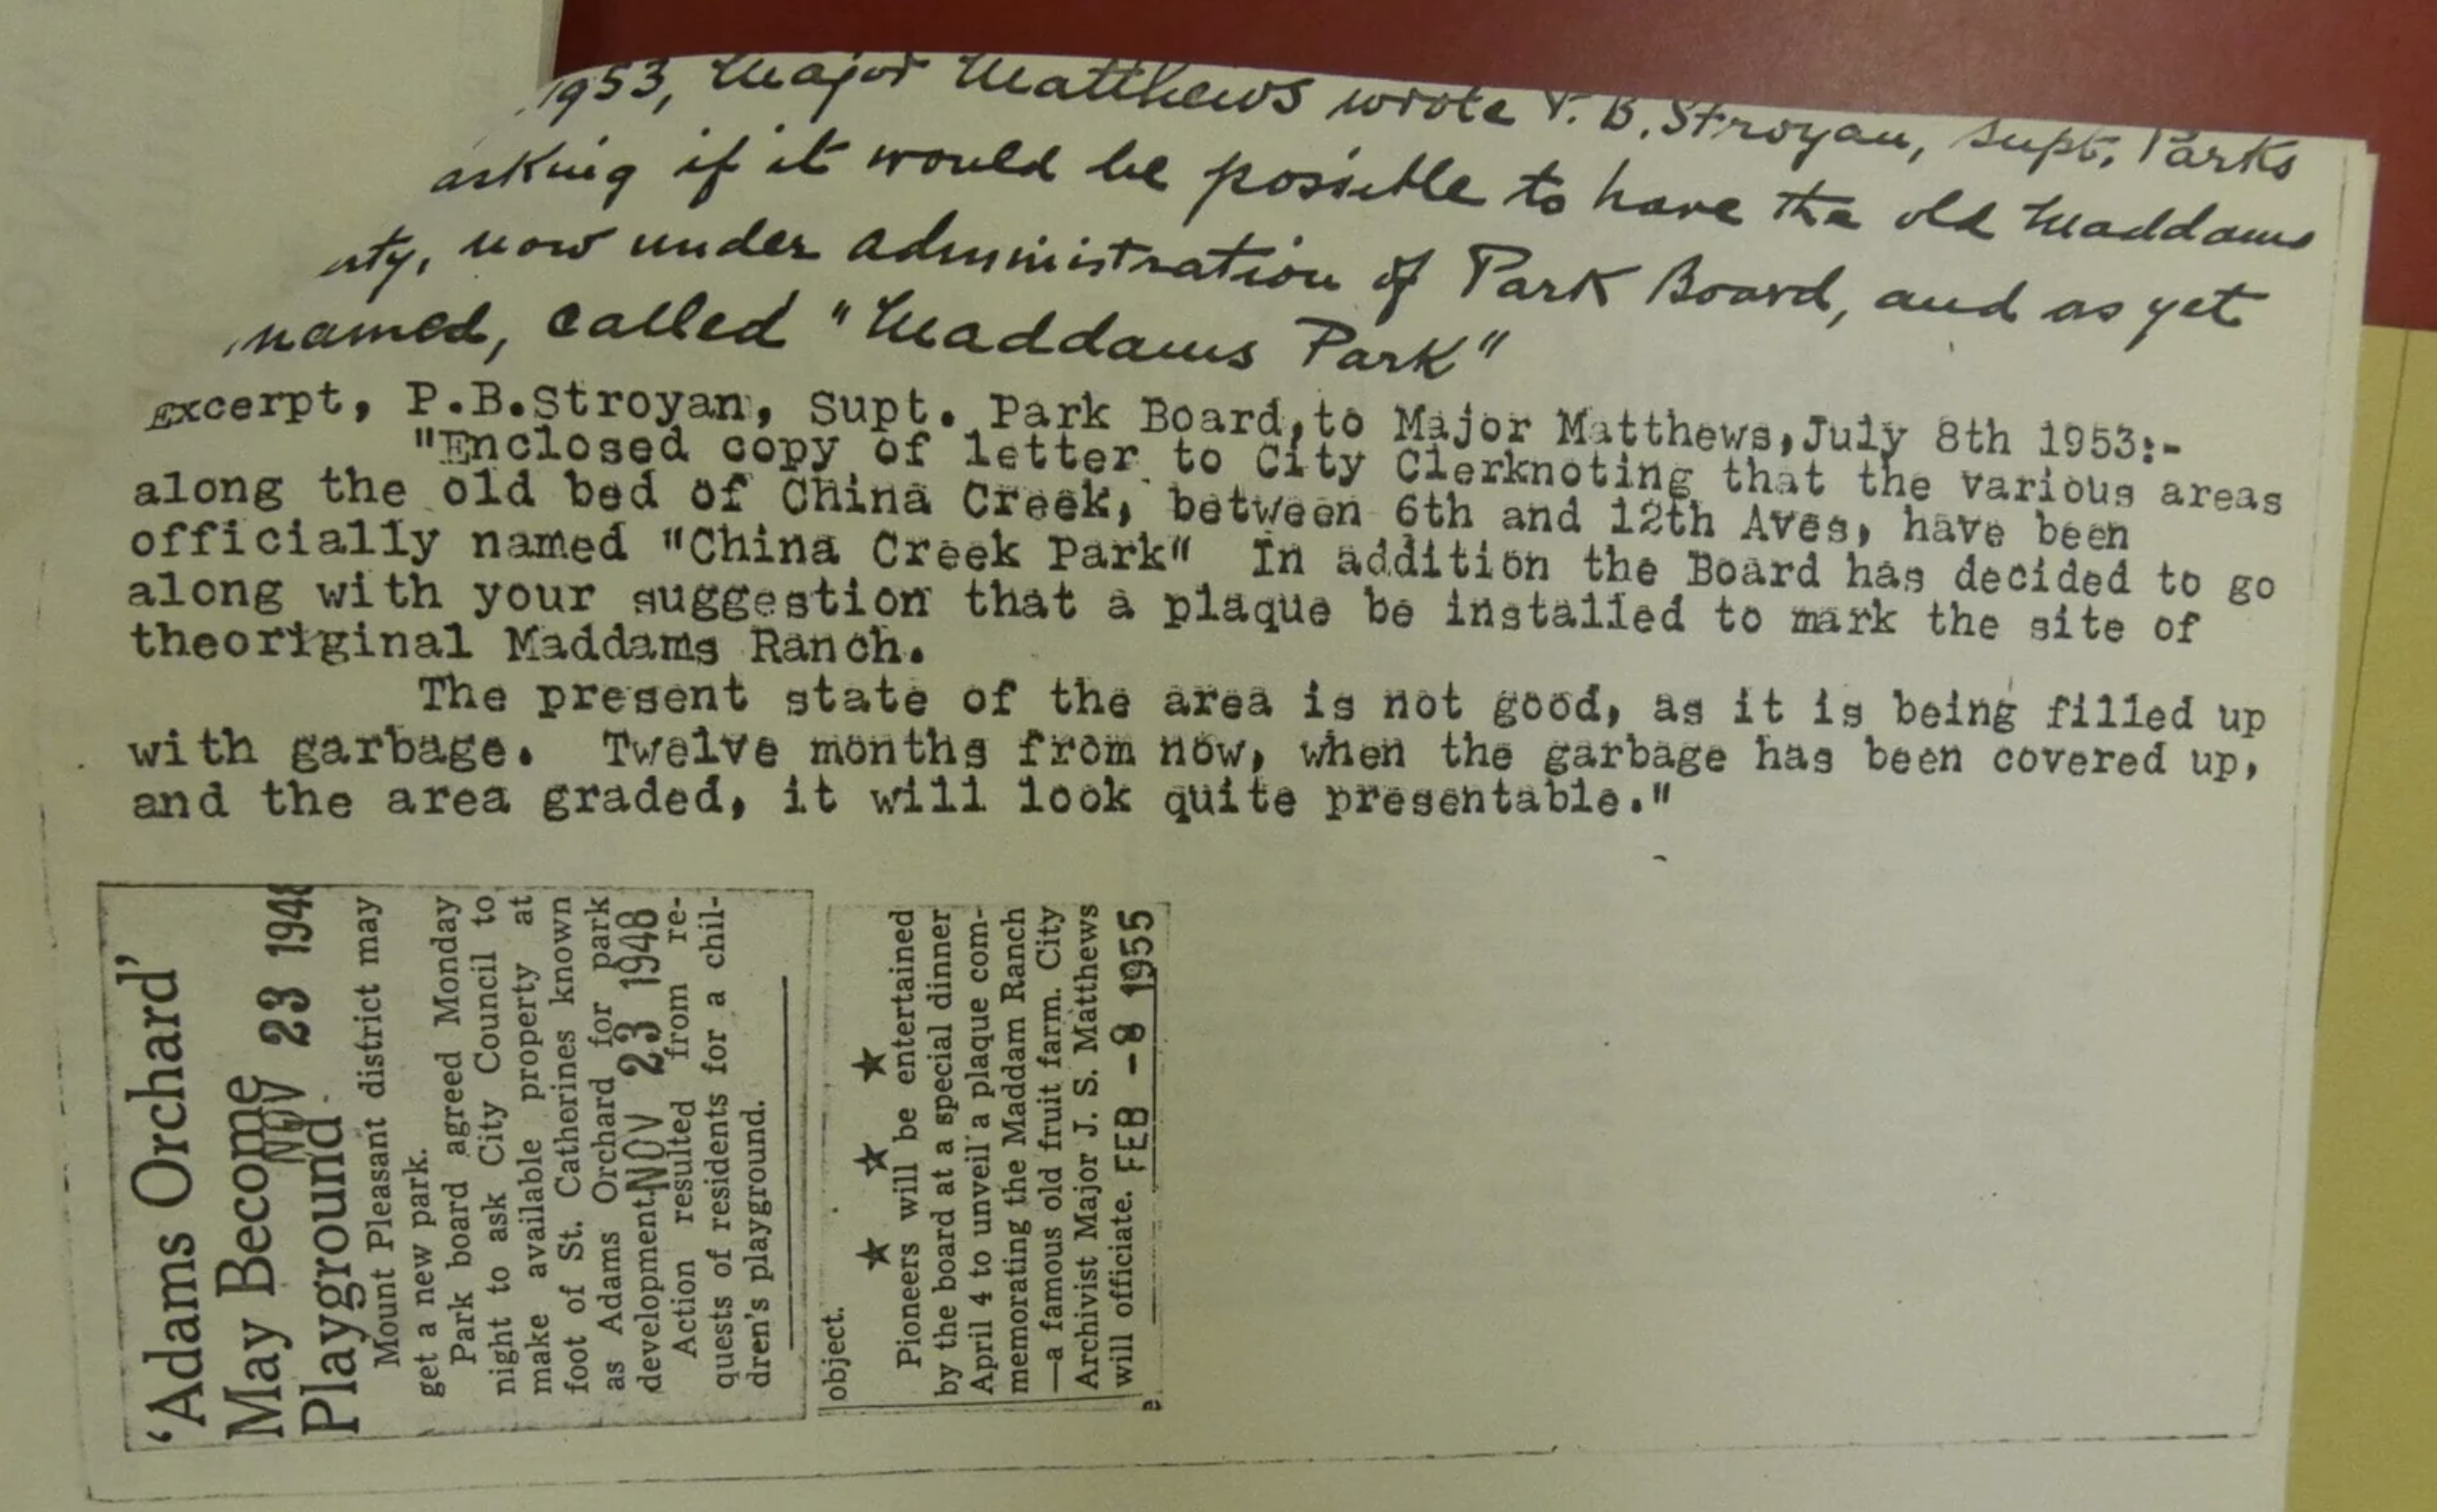 1953, Major Matthews wrote P. B. Stroyan, Supt. Parks
asking if it would be possible to have the old Maddams
rty, now under administration of Park Board, and as yet
named, called "Maddams Park"
Excerpt, P.B.Stroyan, Supt. Park Board,to Major Matthews,July 8th 1953:-
"Enclosed copy of letter to City Clerknoting that the various areas
along the old bed of China Creek, between 6th and 12th Aves, have been
officially named "China Creek Park" In addition the Board has decided to go
along with your suggestion that a plaque be installed to mark the site of
theoriginal Maddams Ranch.
The present state of the area is not good, as it is being filled up
with garbage. Twelve months from now, when the garbage has been covered up,
and the area graded, it will look quite presentable."
'Adams Orchard'
May Become
Playground
NOV 23 1948
Mount Pleasant district may
get a new park.
Park board agreed Monday
night to ask City Council to
make available property at
foot of St. Catherines known
as Adams Orchard for park
development.
NOV 23 1948
Action resulted from re-
quests of residents for a chil-
dren's playground.
object.
★ ★ ★
Pioneers will be entertained
by the board at a special dinner
April 4 to unveil a plaque com-
memorating the Maddam Ranch
—a famous old fruit farm. City
Archivist Major J. S. Matthews
will officiate. FEB -8 1955